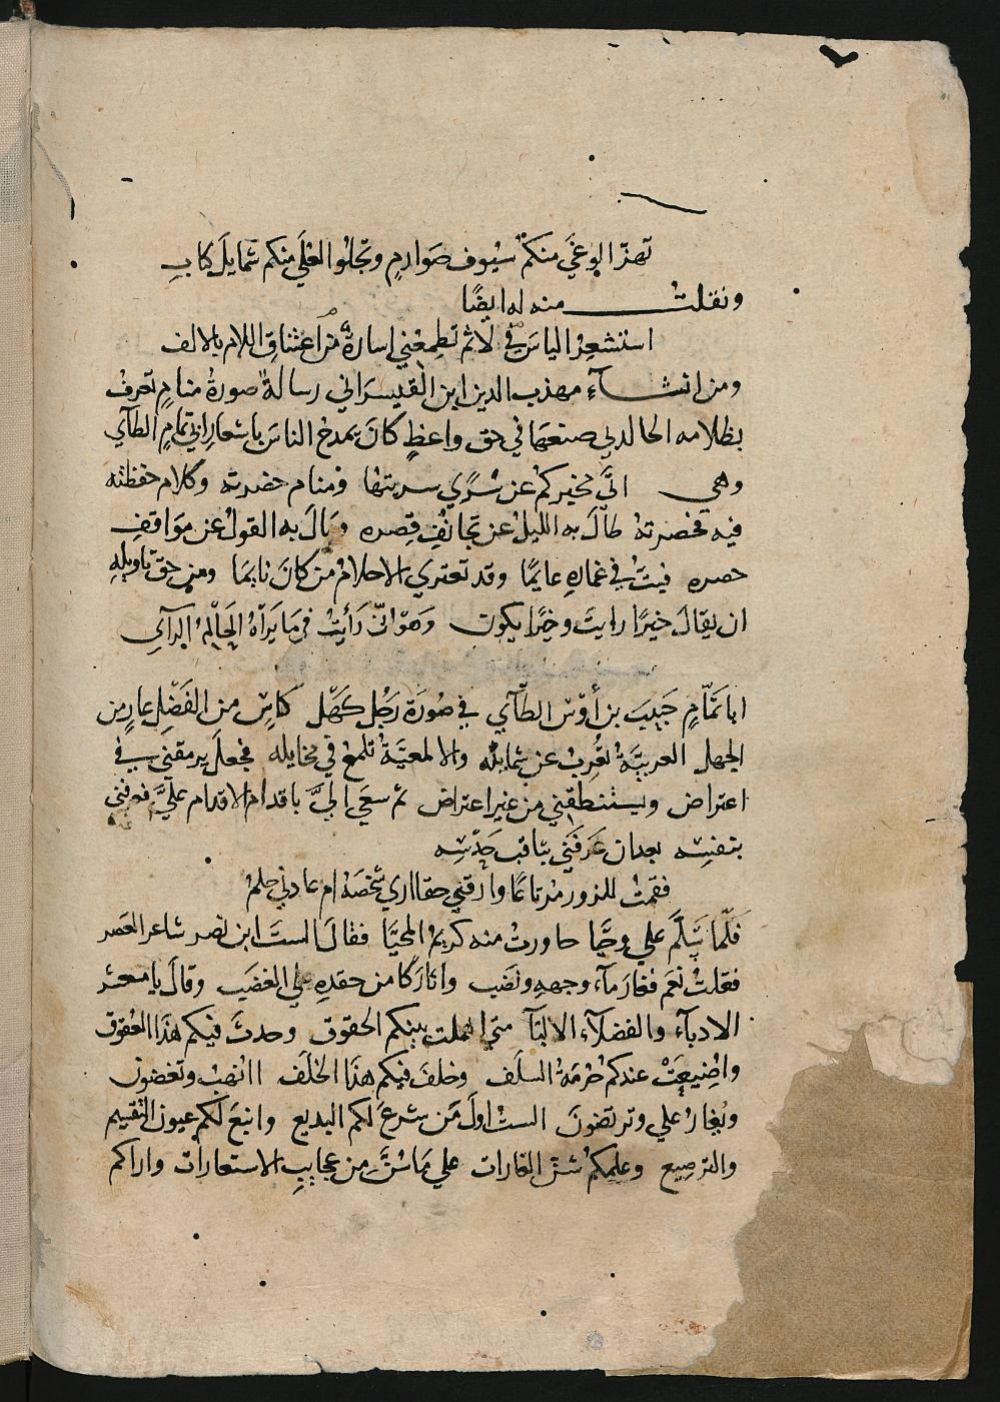 تهزّ الوغَي منكم سُيُوف صَوارمٍ وتجلُوا العُلَي منكم شمايلَ كاتبِ
ونقلت منه له ايضًا
استشعِرُ الياسَ في لا ثم تُطمِعُني اسارةٌ من اعتناقِ اللام بالالف
ومن انشآءِ مهذب الدين ابن القيسراني رسالة صورةُ منامٍ تعرفُ
بظلامه الخالدي صنعهَا في حق واعظٍ كانَ يمدحُ الناسَ باشعارِ ابي تمامٍ الطآي
وهي انَّي مخبركم عن سُرًي سريتها ومنام حضرته وكلام حفظته
فيه فحصرتهُ طالَ به الليلُ عن تجانُفِ قِصره وَبالَ به القولُ عن مَواقفِ
حصره فبتُ في غماره عايمًا وقد تعتري الاحلامُ من كانَ نايمًا ومن حق تاويلهِ
ان يقالَ خيرًا رايتَ وخيرًا يكون وَهوَ انّي رَأيتُ فيمَا يَرَاهُ الحَالِمُ الرآي
ابا تمَّامٍ حَبِيبَ بن أوْسٍ الطآيي في صُورَة رَجُل كَهْلٍ كاسٍ من الفَضْلِ عارٍ من
الجهل العربيَّةُ تُعْرِبُ عن شمايله والالمعيَّةُ تلمعُ في مخايله فجعلَ يرمقني في
اعتراض ويستنطقني من غير اعتراض ثم سعَي اليَّ باقدام الاقدام عليَّ فعرفني
بنفسِه بعد ان عَرَفَني بثاقب حَدْسِه
فقمتُ للزور مُرتاعًا وارقني حقا اري شخصَهُ ام عادني حلمُ
فلّما سَلَّمَ علي وحيَّا حاورتُ منه كريمُ المحيَّا فقالَ الستَ ابن نصر شاعرَ العَصر
فقلتُ نعَم فغارَ مآء وجههِ ونضَب واثارَ كامن حقدِهِ علي الغضَب وقالَ يا معشر
الادبآء والفضلآء الالبَّآ متي اهملت بينكم الحقوق وحدثَ فيكم هذا العُقوق
واضِيعَتْ عندكم حُرمَةُ السلَف وخلفَ فيكم هذَا الخلَف اانهبُ وتغضون
ويُغارُ علي وترتضونَ الستُ اولَ مَن شرعَ لكم البديع وانبعَ لكم عيونَ التقسيم
والترصِيع وعلمكم شنّ الغارات علي مَا سُنَّ من عجايبِ الاستعارات واراكم